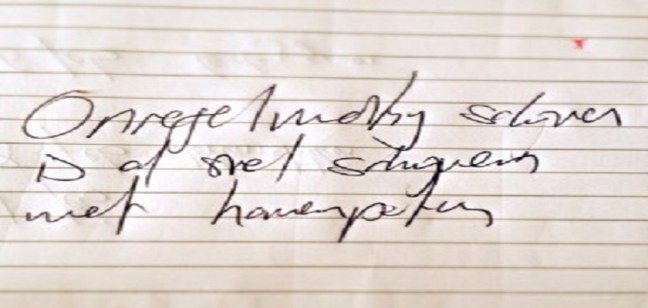 Onregelmatig schrijven
is of snel schrijven
met hanenpoten